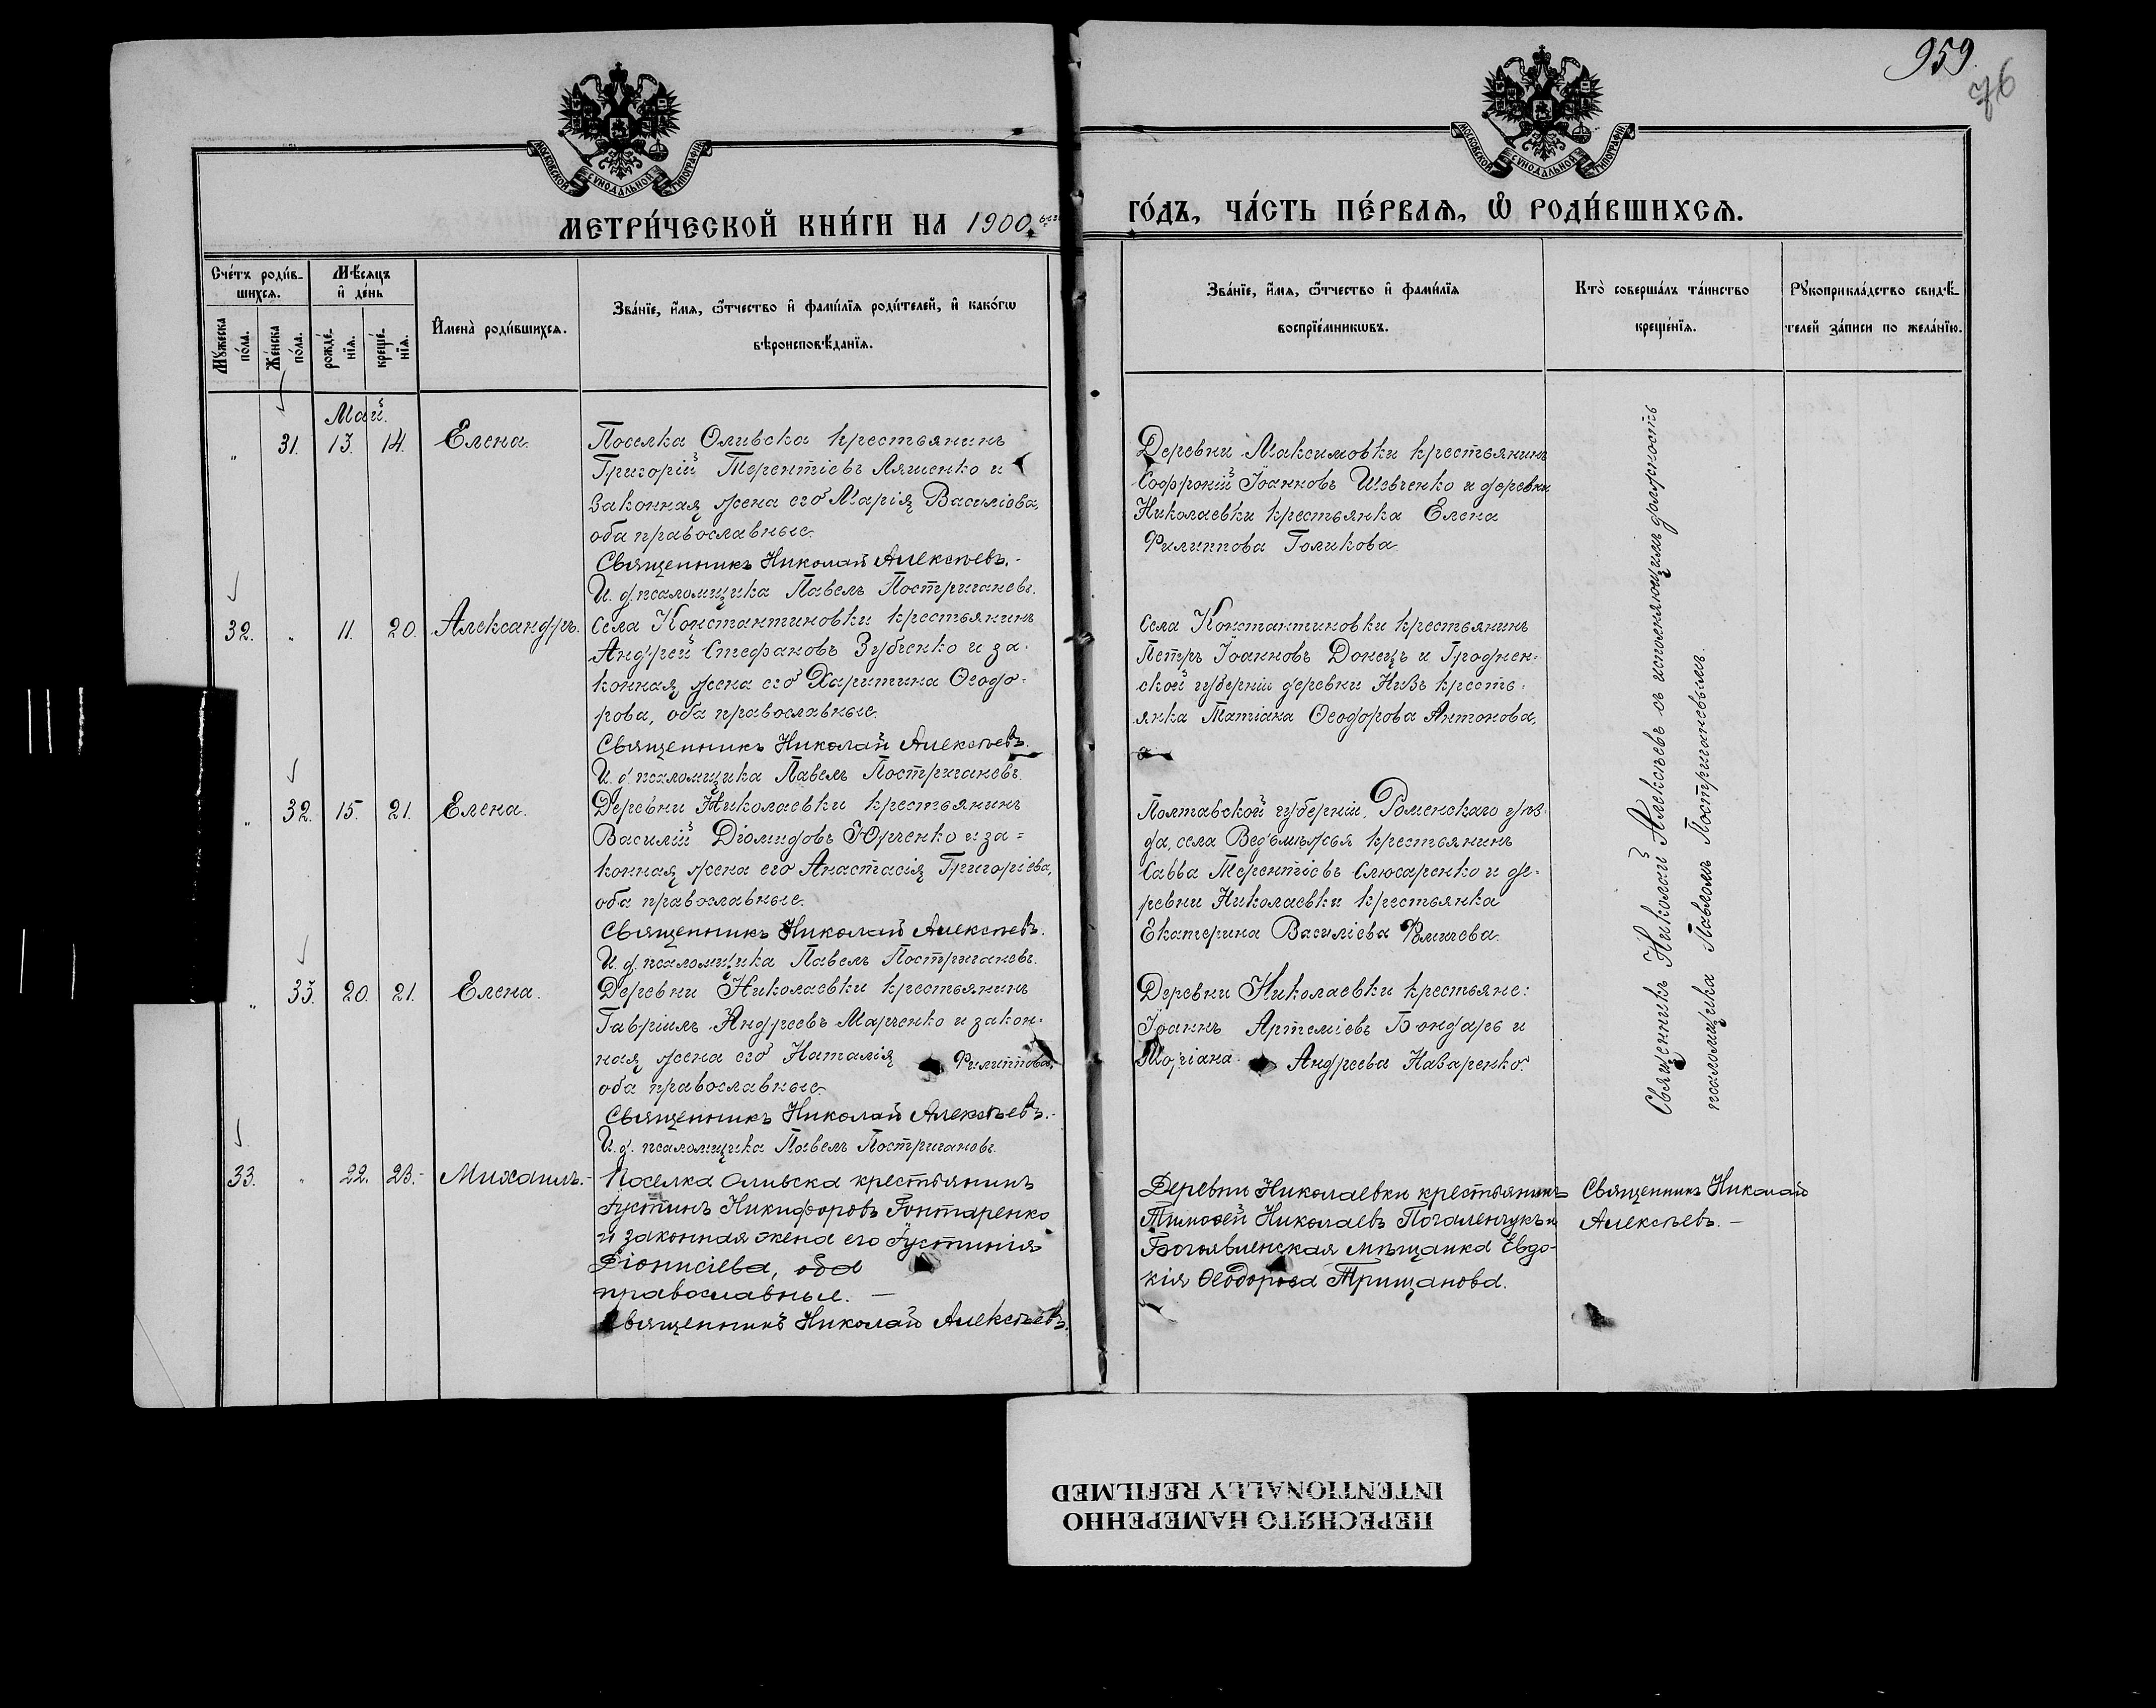 959.
76
МОСКОВСКОЙ СѴНОДАЛЬНОЙ ТИПОГРАФІИ
МОСКОВСКОЙ СѴНОДАЛЬНОЙ ТИПОГРАФІИ
МЕТРИ́ЧЕСКОЙ КНИ́ГИ НА 1900
ГО́ДЪ, ЧА́СТЬ ПЕ́РВАЯ, Ѡ РОДИ́ВШИХСЯ.
Сче́тъ роди́в-
шихся.
Мѣсяцъ
и де́нь
Му́жеска
по́ла.
Же́нска
по́ла.
рожде́-
нїя.
креще́-
нїя.
Имена̀ роди́вшихся.
Зва́нїе, и́мя, ѻ́тчество и фами́лїя роди́телей, и како́гѡ
вѣроисповѣ́данїя.
Зва́нїе, и́мя, ѻ́тчество и фами́лїя
воспрїе́мникѡвъ.
Кто̀ соверша́лъ та́инство
креще́нїя.
Рꙋкоприкла́дство свидѣ́-
телей за́писи по жела́нїю.
Май.
„ 31. 13. 14. Елена.
Поселка Оливска крестьянинъ
Григорій Терентіевъ Ляшенко и
законная жена его Марія Василіева,
оба православные.
Священникъ Николай Алексѣевъ.-
И. д. псаломщика Павелъ Постриганевъ.
Деревни Максимовки крестьянинъ
Софроній Іоанновъ Шевченко и деревни
Николаевки крестьянка Елена
Филиппова Голикова.
32. „ 11. 20. Александръ.
Села Константиновки крестьянинъ
Андрей Стефановъ Зубченко и за-
конная жена его Харитина Ѳеодо-
рова, оба православные.
Священникъ Николай Алексѣевъ.
И. д. псаломщика Павелъ Постриганевъ.
Села Константиновки крестьянинъ
Петръ Іоанновъ Донецъ и Гроднен-
ской губерніи деревни Низъ кресть-
янка Татіана Ѳеодорова Антонова.
„ 32. 15. 21. Елена.
Деревни Николаевки крестьянинъ
Василій Діомидовъ Юрченко и за-
конная жена его Анастасія Григоріева,
оба православные.
Священникъ Николай Алексѣевъ.
И. д. псаломщика Павелъ Постриганевъ.
Полтавской губерніи, Роменскаго уѣз-
да, села крестьянинъ
Савва Терентіевъ Слюсаренко и де-
ревни Николаевки крестьянка
Екатерина Василіева
„ 33. 20. 21. Елена.
Деревни Николаевки крестьянинъ
Гавріилъ Андреевъ Марченко и закон-
ная жена его Наталія Филиппова,
оба православные.
Священникъ Николай Алексѣевъ.-
И. д. псаломщика Павелъ Постригановъ.
Деревни Николаевки крестьяне:
Іоаннъ Артеміевъ Бондарь и
Андреева Назаренко.
Священникъ Николай Алексѣевъ съ исполняющимъ должность
псаломщика Павломъ Постриганевымъ.
33. „ 22. 23.- Михаилъ.-
Поселка Оливска крестьянинъ
Іустинъ Никифоровъ Гонтаренко
и законная жена его Іустинія
Діонисіева, оба
православные. —
Священникъ Николай Алексѣевъ.
Деревни Николаевки крестьянинъ
Тимоѳей Николаевъ и
Богоявленская мѣщанка Евдо-
кія Ѳеодорова Трищанова.
Священникъ Николай
Алексѣевъ. —
ПЕРЕСНЯТО НАМЕРЕННО
INTENTIONALLY REFILMED